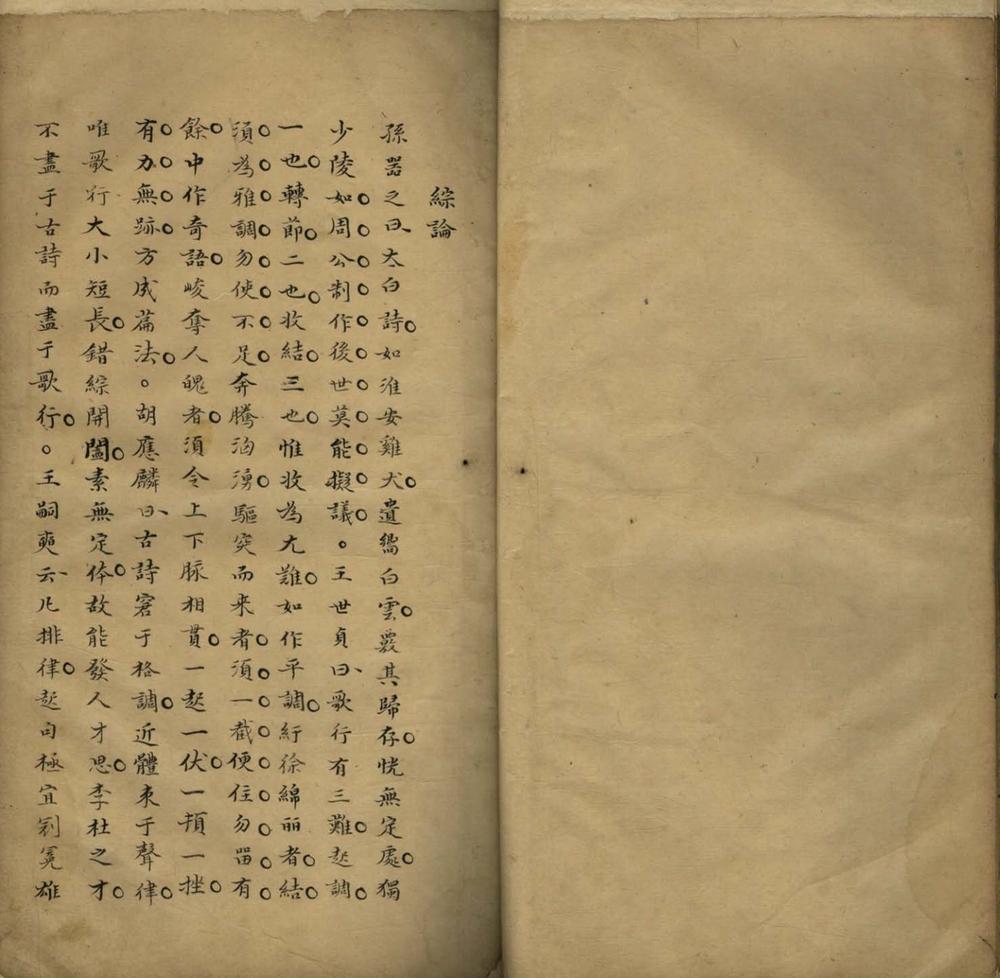 綜論
孫器之曰太白詩如淮安雞犬遺響白雲覈其歸存恍無定處獨
少陵如周公制作後世莫能擬議。王世貞曰歌行有三難起調
一也轉節二也收結三也惟收為尤難如作平調紆徐綿丽者結
須為雅調勿使不足奔騰洶湧驅突而来者須一截便住勿畱有
餘中作奇語峻奪人魄者須令上下脉相貫一起一伏一頓一挫
有力無跡方成篇法。胡應麟曰古詩窘于格調近體束于聲律
唯歌行大小短長錯綜開闔素無定体故能發人才思李杜之才
不盡于古詩而盡于歌行。王嗣奭云凡排律起句極宜冠雄